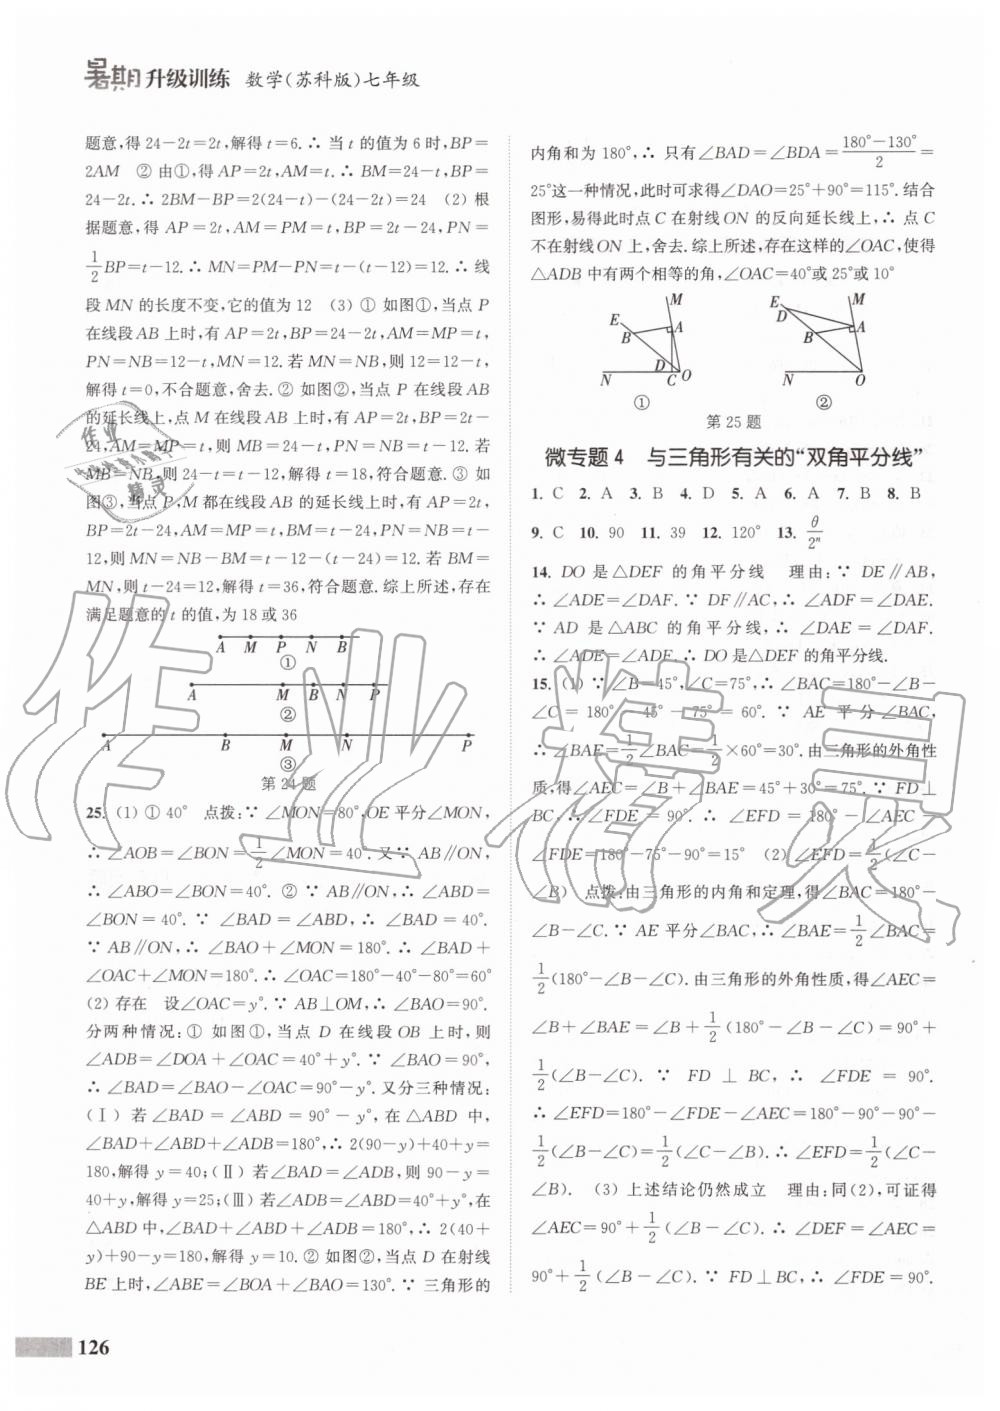 暑期升级训练 数学(苏科版)七年级
题意,得 24-2t=2t,解得 t=6.∴ 当 t 的值为 6 时,BP=
2AM ② 由①,得 AP=2t,AM=t.∴ BM=24-t,BP=
24-2t.∴ 2BM-BP=2(24-t)-(24-2t)=24 (2) 根
据题意,得 AP=2t,AM=PM=t,BP=2t-24,PN=
1/2BP=t-12.∴ MN=PM-PN=t-(t-12)=12.∴ 线
段 MN 的长度不变,它的值为 12 (3) ① 如图①,当点 P
在线段 AB 上时,有 AP=2t,BP=24-2t,AM=MP=t,
PN=NB=12-t,MN=12.若 MN=NB,则 12=12-t,
解得 t=0,不合题意,舍去.② 如图②,当点 P 在线段 AB
的延长线上,点 M 在线段 AB 上时,有 AP=2t,BP=2t-
24,AM=MP=t,则 MB=24-t,PN=NB=t-12.若
MB=NB,则 24-t=t-12,解得 t=18,符合题意.③ 如
图③,当点 P、M 都在线段 AB 的延长线上时,有 AP=2t,
BP=2t-24,AM=MP=t,BM=t-24,PN=NB=t-
12,则 MN=NB-BM=t-12-(t-24)=12.若 BM=
MN,则 t-24=12,解得 t=36,符合题意.综上所述,存在
满足题意的 t 的值,为 18 或 36
A M P N B
①
A M B N P
②
A B M N P
③
第 24 题
25. (1) ① 40° 点拨:∵ ∠MON=80°,OE 平分∠MON,
∴ ∠AOB=∠BON=1/2∠MON=40°.又∵ AB∥ON,
∴ ∠ABO=∠BON=40°. ② ∵ AB∥ON,∴ ∠ABD=
∠BON=40°.∵ ∠BAD=∠ABD,∴ ∠BAD=40°.
∵ AB∥ON,∴ ∠BAO+∠MON=180°.∴ ∠BAD+
∠OAC+∠MON=180°.∴ ∠OAC=180°-40°-80°=60°
(2) 存在 设∠OAC=y°.∵ AB⊥OM,∴ ∠BAO=90°.
分两种情况:① 如图①,当点 D 在线段 OB 上时,则
∠ADB=∠DOA+∠OAC=40°+y°.∵ ∠BAO=90°,
∴ ∠BAD=∠BAO-∠OAC=90°-y°.又分三种情况:
(Ⅰ) 若∠BAD=∠ABD=90°-y°,在△ABD 中,
∠BAD+∠ABD+∠ADB=180°,∴ 2(90-y)+40+y=
180,解得 y=40;(Ⅱ) 若∠BAD=∠ADB,则 90-y=
40+y,解得 y=25;(Ⅲ) 若∠ADB=∠ABD=40°+y°,在
△ABD 中,∠BAD+∠ABD+∠ADB=180°,∴ 2(40+
y)+90-y=180,解得 y=10.② 如图②,当点 D 在射线
BE 上时,∠ABE=∠BOA+∠BAO=130°.∵ 三角形的
内角和为 180°,∴ 只有∠BAD=∠BDA=(180°-130°)/2=
25°这一种情况,此时可求得∠DAO=25°+90°=115°.结合
图形,易得此时点 C 在射线 ON 的反向延长线上,∴ 点 C
不在射线 ON 上,舍去.综上所述,存在这样的∠OAC,使得
△ADB 中有两个相等的角,∠OAC=40°或 25°或 10°
M E B A D N C O
①
M E D B A N O
②
第 25 题
微专题 4 与三角形有关的“双角平分线”
1. C 2. A 3. B 4. D 5. A 6. A 7. B 8. B
9. C 10. 90 11. 39 12. 120° 13. θ/2ⁿ
14. DO 是△DEF 的角平分线 理由:∵ DE∥AB,
∴ ∠ADE=∠DAF.∵ DF∥AC,∴ ∠ADF=∠DAE.
∵ AD 是△ABC 的角平分线,∴ ∠DAE=∠DAF.
∴ ∠ADE=∠ADF.∴ DO 是△DEF 的角平分线.
15. (1) ∵ ∠B=45°,∠C=75°,∴ ∠BAC=180°-∠B-
∠C=180°-45°-75°=60°.∵ AE 平分∠BAC,
∴ ∠BAE=1/2∠BAC=1/2×60°=30°.由三角形的外角性
质,得∠AEC=∠B+∠BAE=45°+30°=75°.∵ FD⊥
BC,∴ ∠FDE=90°.∴ ∠EFD=180°-∠AEC-
∠FDE=180°-75°-90°=15° (2) ∠EFD=1/2(∠C-
∠B) 点拨:由三角形的内角和定理,得∠BAC=180°-
∠B-∠C.∵ AE 平分∠BAC,∴ ∠BAE=1/2∠BAC=
1/2(180°-∠B-∠C).由三角形的外角性质,得∠AEC=
∠B+∠BAE=∠B+1/2(180°-∠B-∠C)=90°+
1/2(∠B-∠C).∵ FD⊥BC,∴ ∠FDE=90°.
∴ ∠EFD=180°-∠FDE-∠AEC=180°-90°-90°-
1/2(∠B-∠C)=1/2(∠C-∠B).∴ ∠EFD=1/2(∠C-
∠B). (3) 上述结论仍然成立 理由:同(2),可证得
∠AEC=90°+1/2(∠B-∠C).∴ ∠DEF=∠AEC=
90°+1/2(∠B-∠C).∵ FD⊥BC,∴ ∠FDE=90°.
126
作业精灵